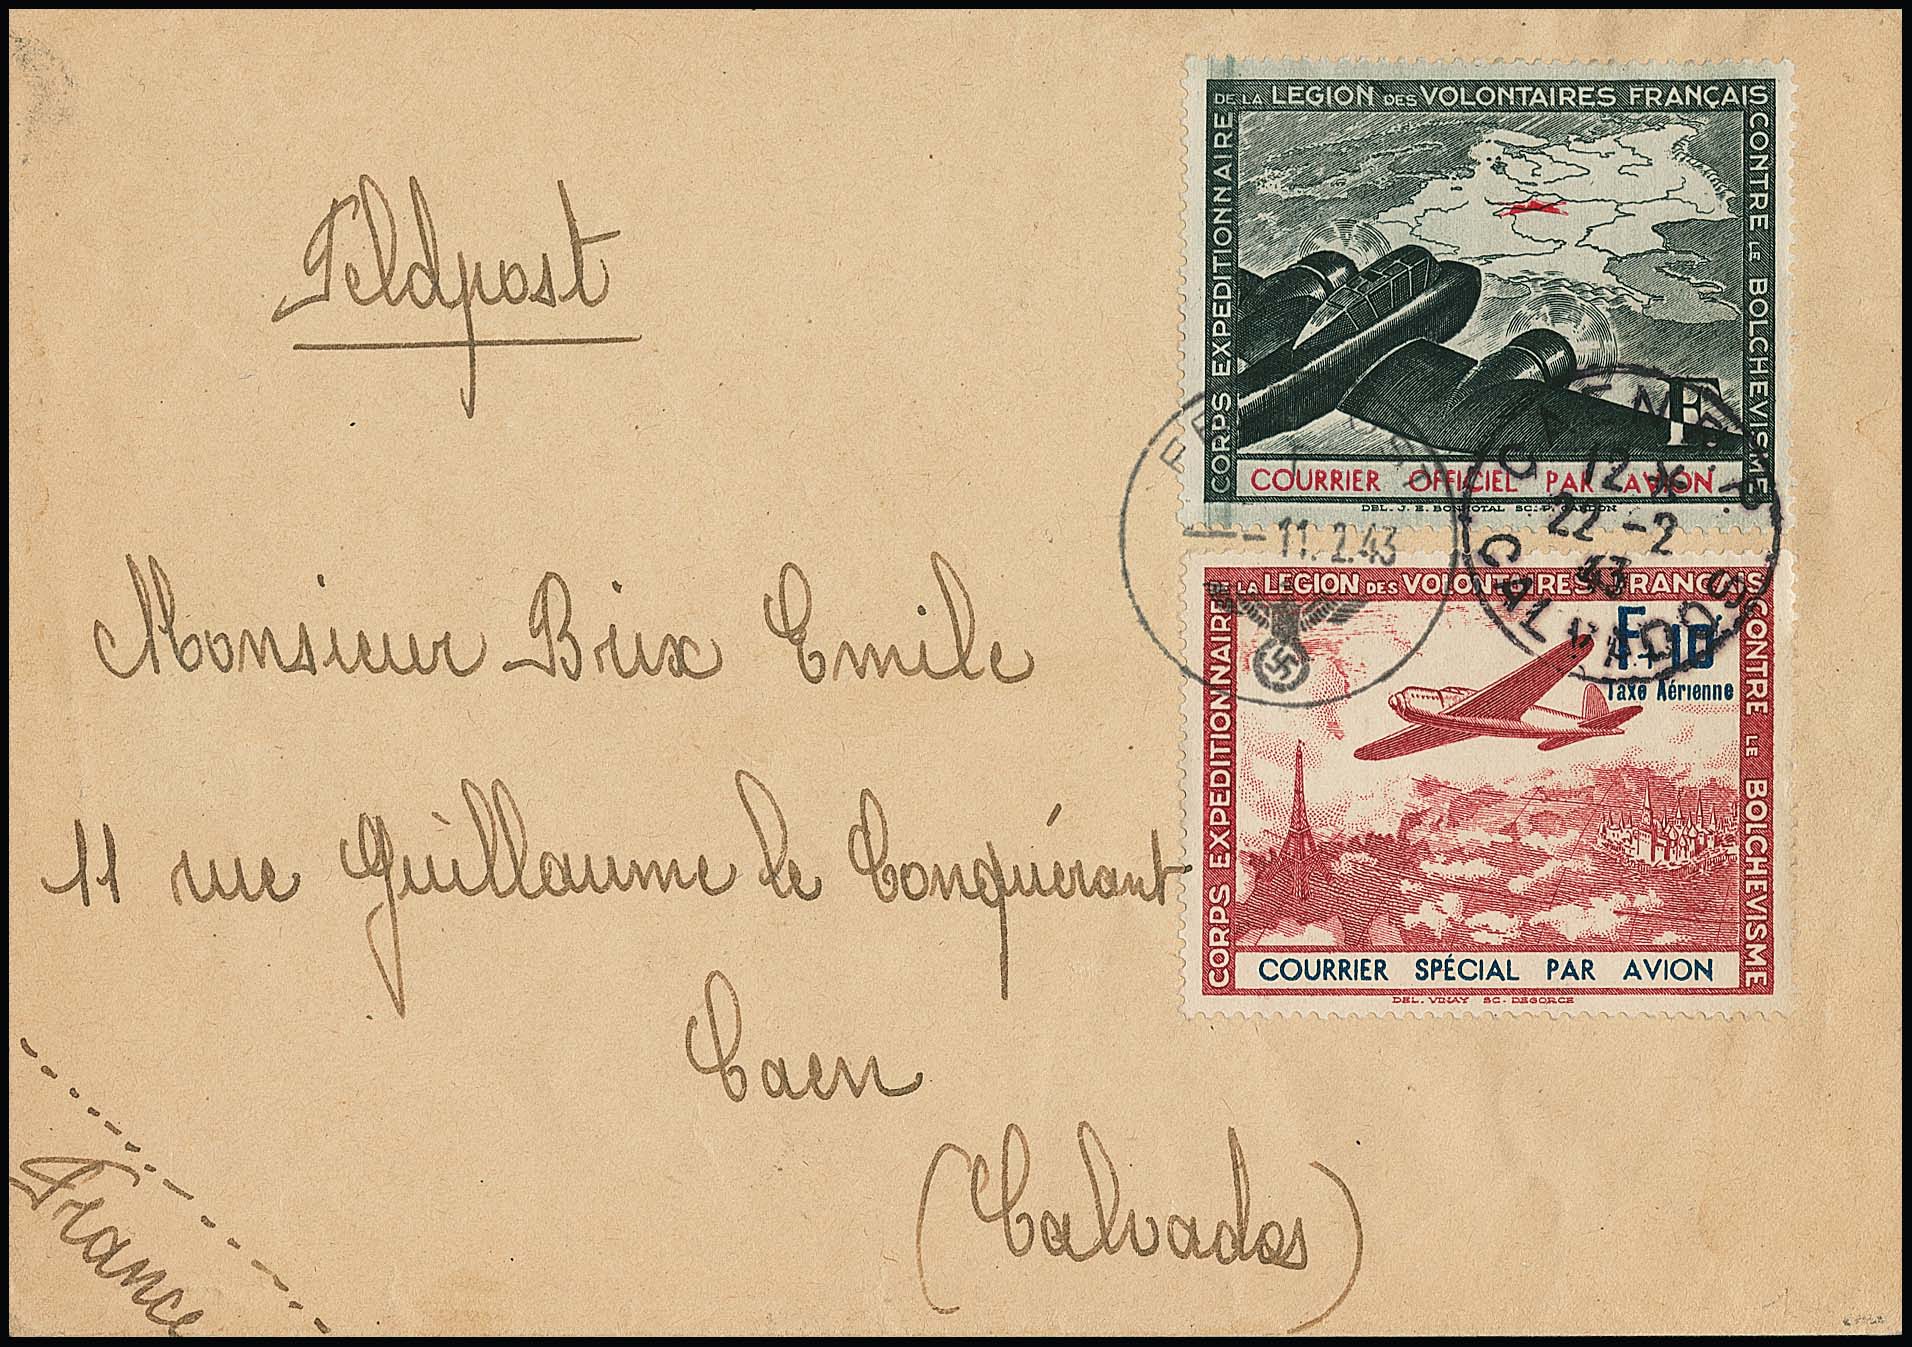 Feldpost
Monsieur Brix Emile
11 rue Guillaume le Conquérant
Caen
(Calvados)
France
DE LA LEGION DES VOLONTAIRES FRANÇAIS
CORPS EXPEDITIONNAIRE
CONTRE LE BOLCHEVISME
F
COURRIER OFFICIEL PAR AVION
DEL. J. E. BONHOTAL SC. P. GANDON
11.2.43
12 H
22 -2
43
CALVADOS
DE LA LEGION DES VOLONTAIRES FRANÇAIS
CORPS EXPEDITIONNAIRE
CONTRE LE BOLCHEVISME
F+10F
Taxe Aérienne
COURRIER SPÉCIAL PAR AVION
DEL. VINAY SC. DEGORCE